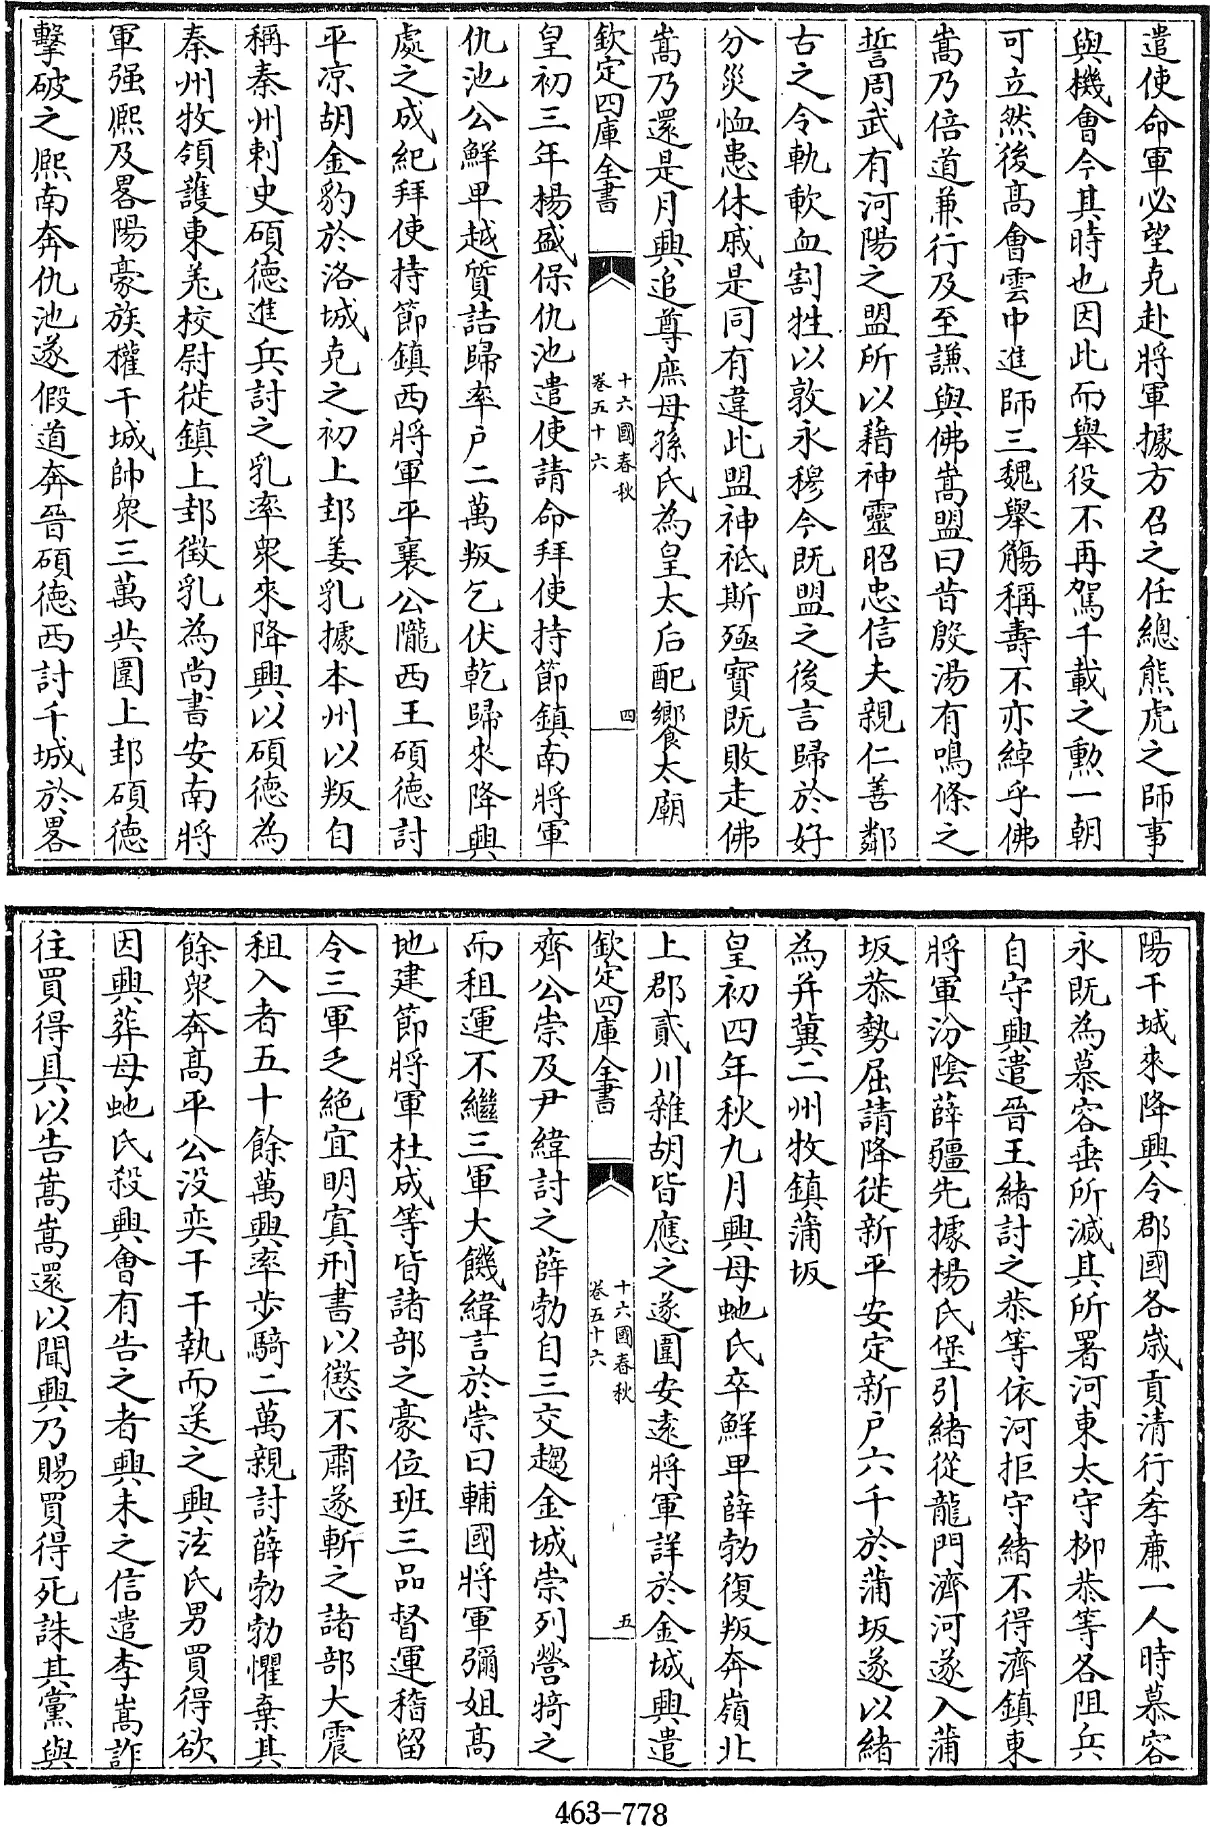 遣使命軍必望克赴將軍據方召之任總熊虎之師事
與機會今其時也因此而舉役不再駕千載之勲一朝
可立然後髙會雲中進師三魏舉觴稱壽不亦綽乎佛
嵩乃倍道兼行及至謙與佛嵩盟曰昔殷湯有鳴條之
誓周武有河陽之盟所以藉神靈昭忠信夫親仁善鄰
古之令軌歃血割牲以敦永穆今既盟之後言歸於好
分災恤患休戚是同有違此盟神祗斯殛寶既敗走佛
嵩乃還是月興追尊庶母孫氏為皇太后配饗太廟
欽定四庫全書
十六國春秋
卷五十六
四
皇初三年楊盛保仇池遣使請命拜使持節鎮南將軍
仇池公鮮卑越質詰歸率户二萬叛乞伏乾歸來降興
處之成紀拜使持節鎮西將軍平襄公隴西王碩德討
平凉胡金豹於洛城克之初上邽姜乳據本州以叛自
稱秦州刺史碩德進兵討之乳率衆來降興以碩德為
秦州牧領護東羌校尉徙鎮上邽徴乳為尚書安南將
軍强熈及畧陽豪族權干城帥衆三萬共圍上邽碩德
擊破之熈南奔仇池遂假道奔晉碩德西討千城於畧
陽干城來降興令郡國各歲貢清行孝亷一人時慕容
永既為慕容垂所滅其所署河東太守柳恭等各阻兵
自守興遣晉王緒討之恭等依河拒守緒不得濟鎮東
將軍汾陰薛彊先據楊氏堡引緒從龍門濟河遂入蒲
坂恭勢屈請降徙新平安定新户六千於蒲坂遂以緒
為并冀二州牧鎮蒲坂
皇初四年秋九月興母虵氏卒鮮卑薛勃復叛奔嶺北
上郡貳川雜胡皆應之遂圍安逺將軍詳於金城興遣
欽定四庫全書
十六國春秋
卷五十六
五
齊公崇及尹緯討之薛勃自三交趨金城崇列營犄之
而租運不繼三軍大饑緯言於崇曰輔國將軍彌姐髙
地建節將軍杜成等皆諸部之豪位班三品督運稽留
令三軍乏絶宜明寘刑書以懲不肅遂斬之諸部大震
租入者五十餘萬興率步騎二萬親討薛勃勃懼棄其
餘衆奔髙平公没奕干干執而送之興泫氏男買得欲
因興葬母虵氏殺興會有告之者興未之信遣李嵩詐
往買得具以告嵩嵩還以聞興乃賜買得死誅其黨與
463-778